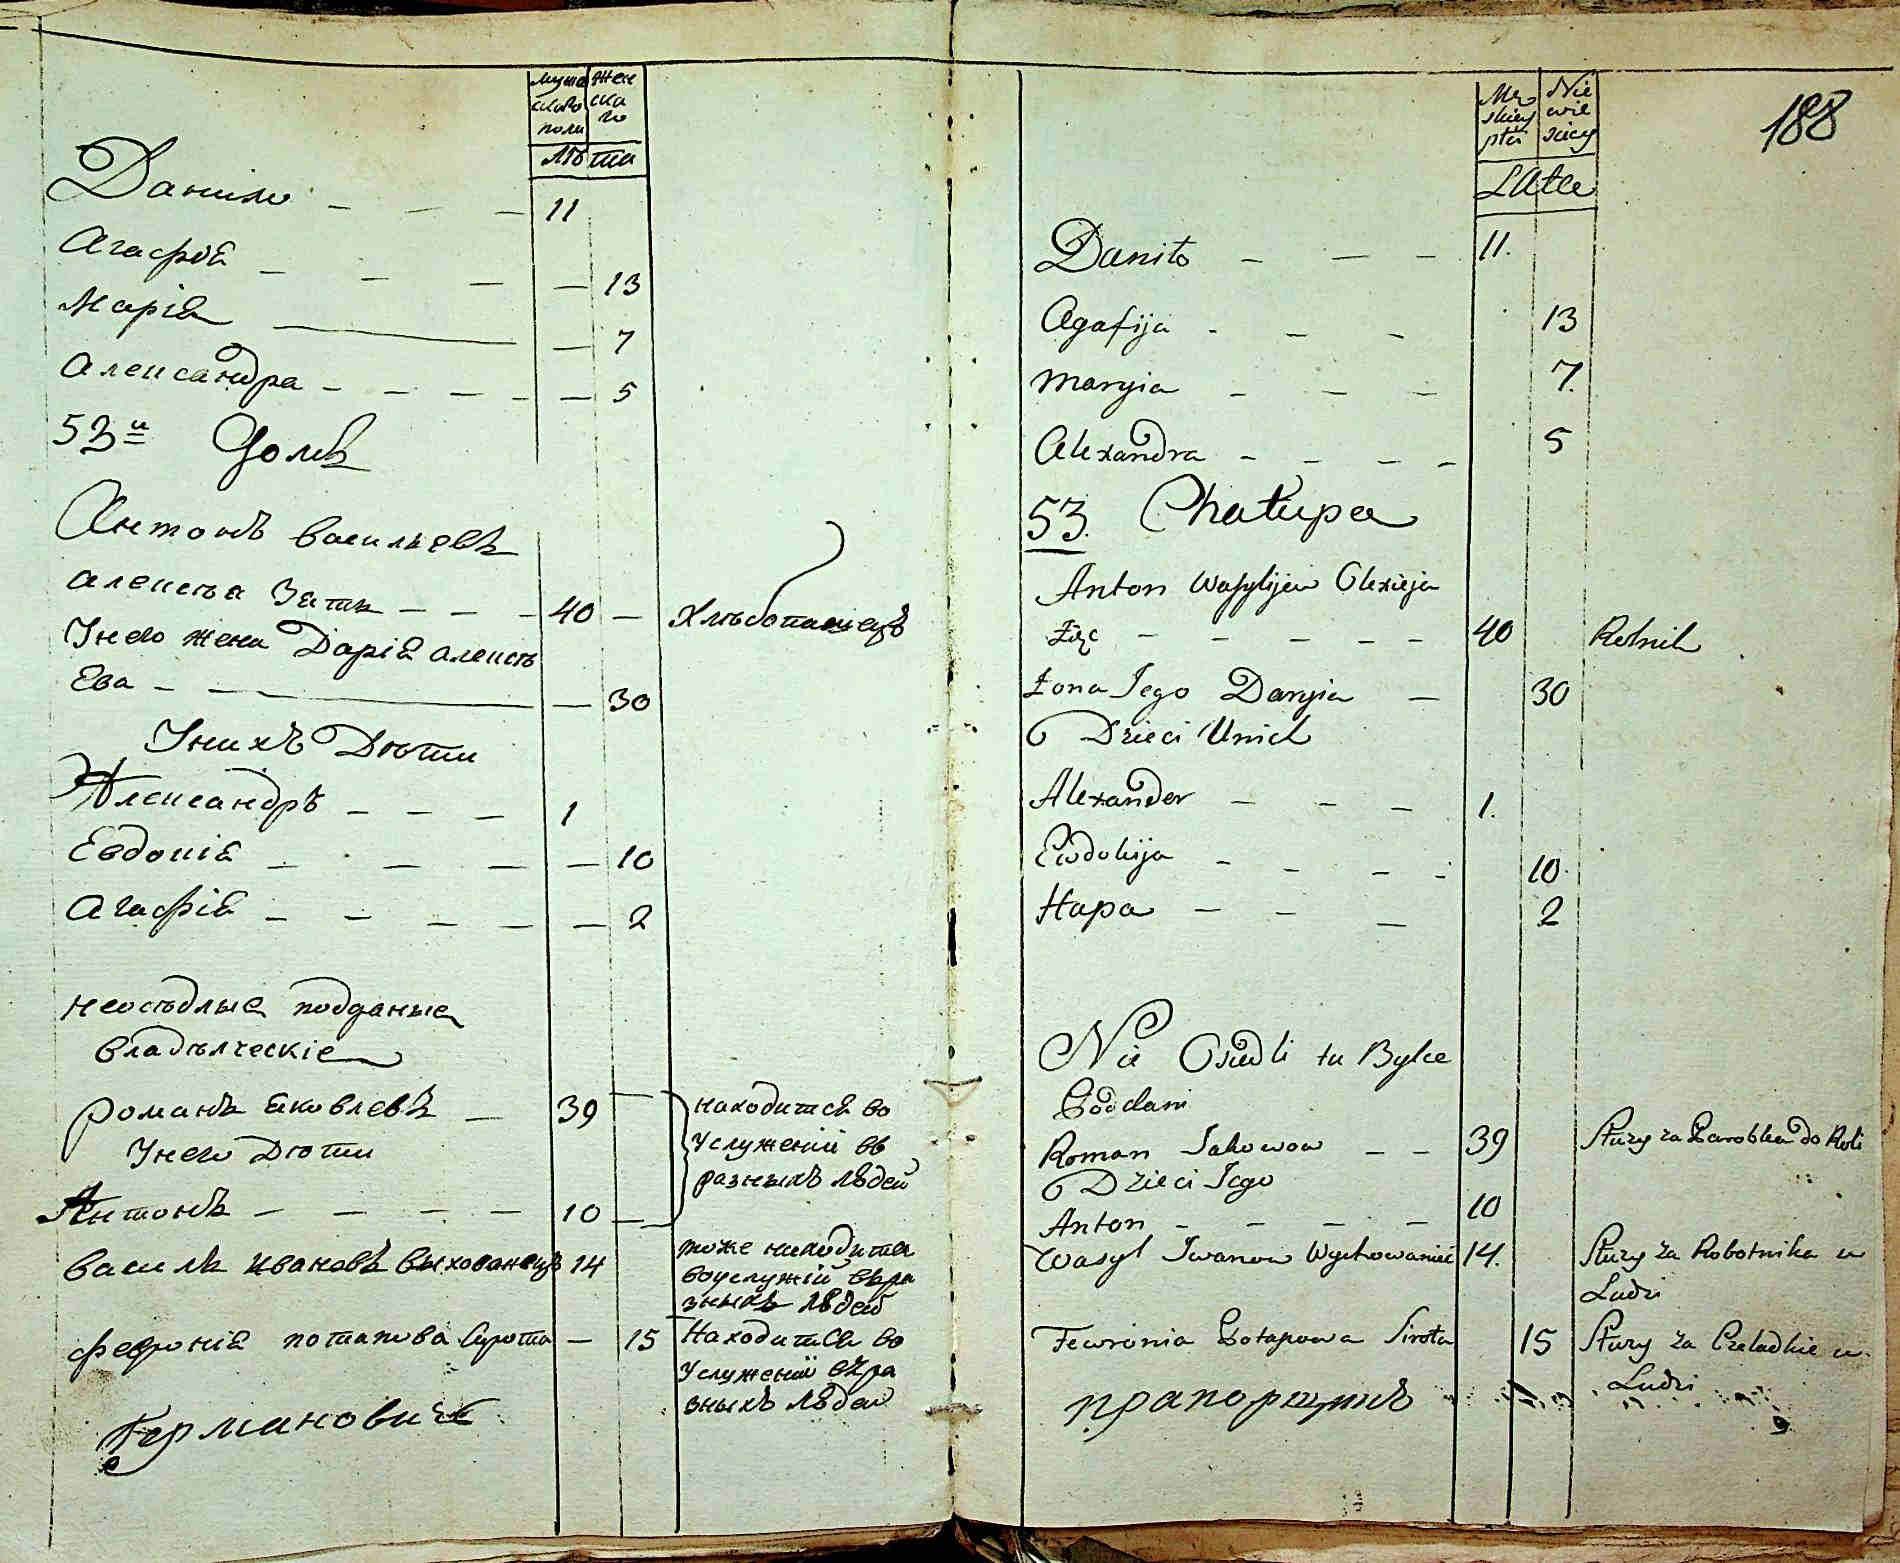 мужескаго полу
женскаго
лѣта
Данило — — — 11
Агафія — — — — 13
Марія — — 7
Александра — — — — — 5
53й Домъ
Антонъ Васильевъ
Алексѣа Зать — — — 40 — Хлѣбопашецъ
У него жена Дарія Алексѣ
Ева — — — 30
У нихъ Дѣти
Александръ — — — 1
Евдокія — — — — 10
Агафія — — — — — 2
неосѣдлые подданые
владѣлческіе
Романъ Яковлевъ — 39
У него Дѣти
Антонъ — — — — 10 —
находится во
услуженіи въ
разныхъ людей
Василь Ивановъ выхованецъ 14
тоже находится
воуслужіи въра
зныхъ людей
Феврониія потапова Сирота — 15
Находится во
услуженіи въра
зныхъ людей
Германовичъ
188
Męskiey płci
Niewieściey
Lata
Daniło — — — 11.
Agafija - — — 13
Maryia — — — 7.
Alexandra — — — — 5
53. Chałupa
Anton Wasylijew Olexieja
Zięc — — — — — 40 Rolnik
Żona Jego Daryia — 30
Dzieci Unich
Alexander — — — 1.
Ewdokija - — — - 10.
Hapa — — — 2
Nie Osiedli tu Bylce
Poddani
Roman Jakowow — — 39 Służy za Parobka do Roli
Dzieci Jego
Anton — — — — 10
Wasyl Iwanow Wychowaniec 14. Służy za Robotnika u
Ludzi
Fewronia Potapowa Sirota 15 Służy za Czeladkie u
Ludzi
прапорщикъ